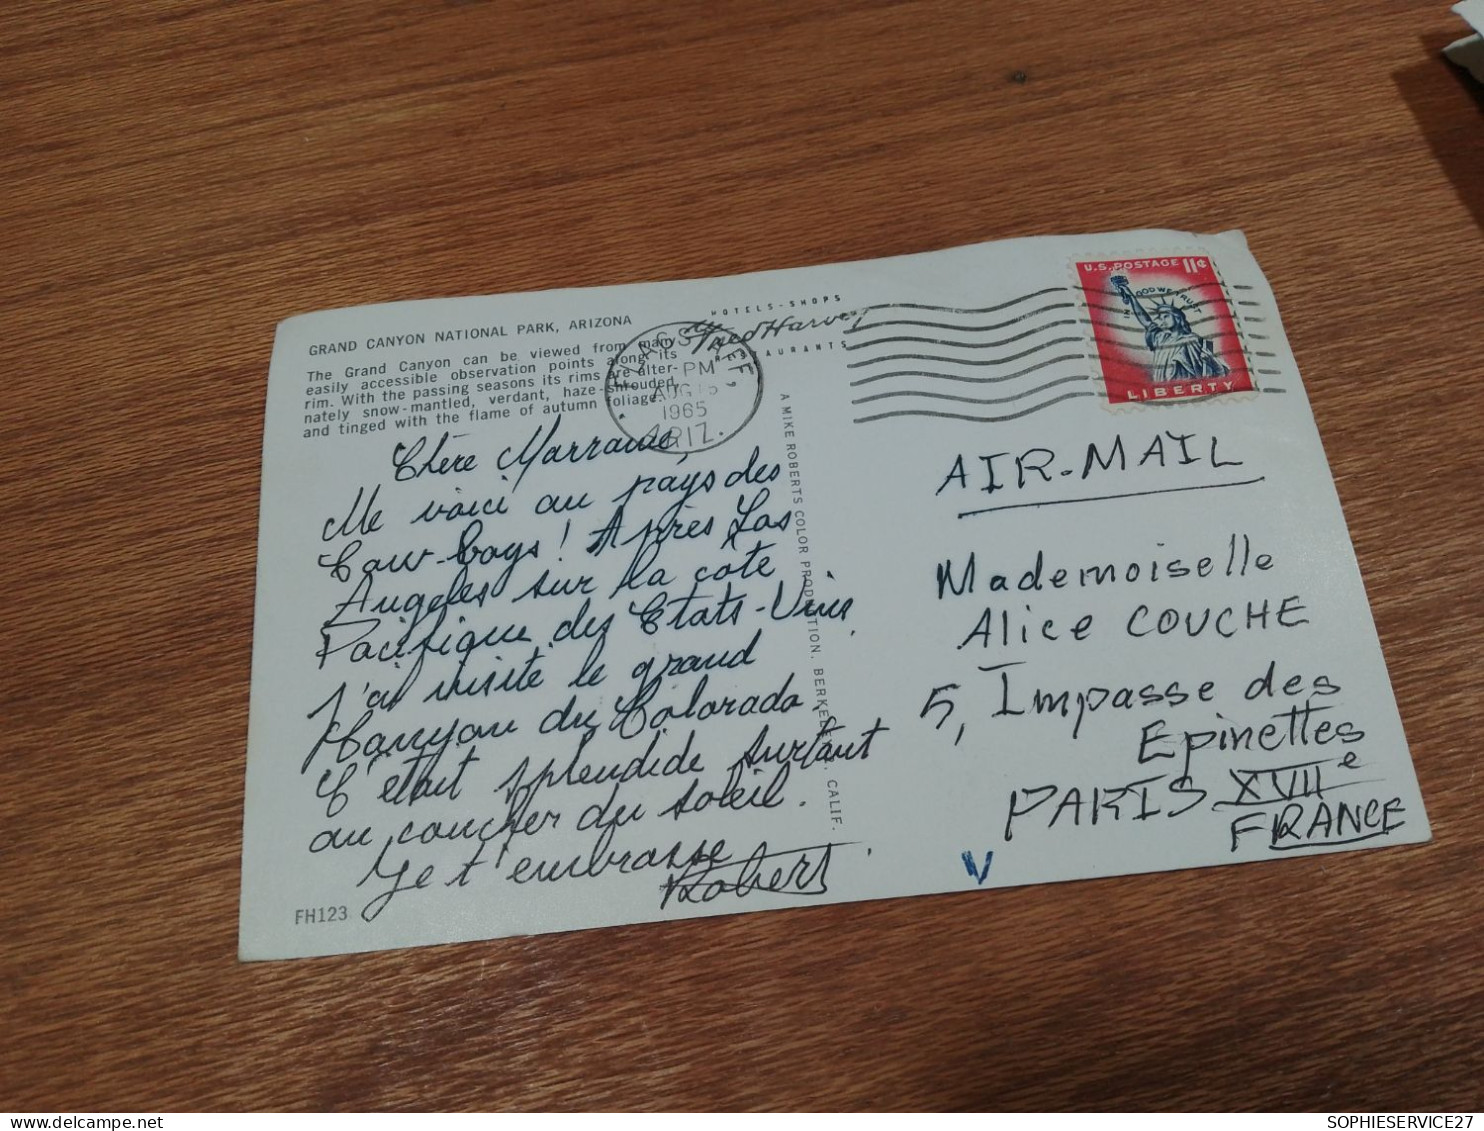 GRAND CANYON NATIONAL PARK, ARIZONA
The Grand Canyon can be viewed from many
easily accessible observation points along its
rim. With the passing seasons its rims are alter-
nately snow-mantled, verdant, haze-shrouded,
and tinged with the flame of autumn foliage.
Chère Marraine,
Me voici au pays des
Cow-boys ! Après Los
Angeles sur la côte
Pacifique des Etats-Unis
j'ai visité le grand
Canyon du Colorado.
C'était splendide surtout
au coucher du soleil.
Je t'embrasse
Robert
FH123
HOTELS-SHOPS
Fred Harvey
RESTAURANTS
FLAGSTAFF,
PM
AUG
1965
ARIZ.
A MIKE ROBERTS COLOR PRODUCTION, BERKELEY, CALIF.
U.S. POSTAGE 11¢
IN GOD WE TRUST
LIBERTY
AIR-MAIL
Mademoiselle
Alice COUCHE
5, Impasse des
Epinettes
PARIS XVIIe
FRANCE
V
SOPHIESERVICE27